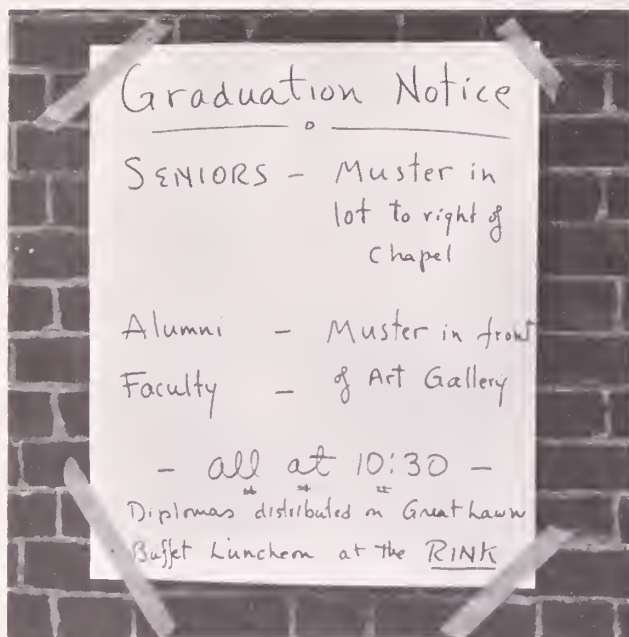 Graduation Notice
SENIORS - Muster in
lot to right of
Chapel
Alumni - Muster in front
Faculty - of Art Gallery
- all at 10:30 -
Diplomas distributed on Great Lawn
Buffet Luncheon at the RINK